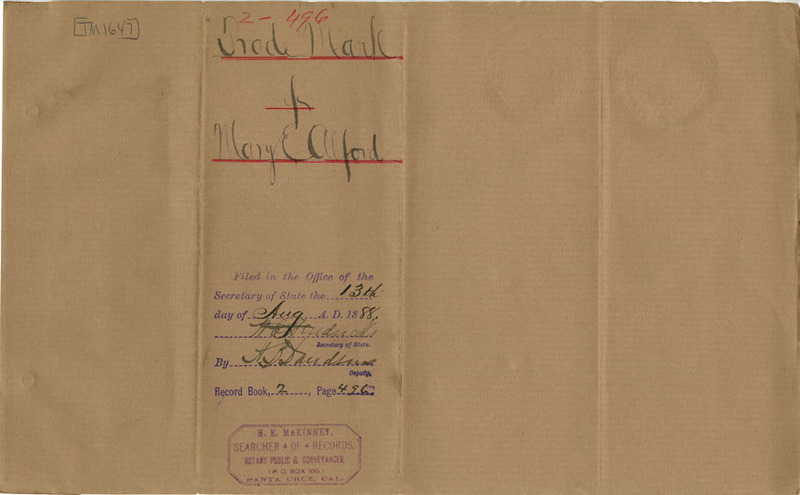 [TM1647]
2-496
Trade Mark
of
Mary E Alford
Filed in the Office of the
Secretary of State the 13th
day of Aug A. D. 1888,
Secretary of State.
By
Deputy,
Record Book, 2, Page 496
H. E. MAKINNEY,
SEARCHER * OF * RECORDS,
NOTARY PUBLIC & CONVEYANCER,
(P O BOX 100.)
SANTA CRUZ, CAL.